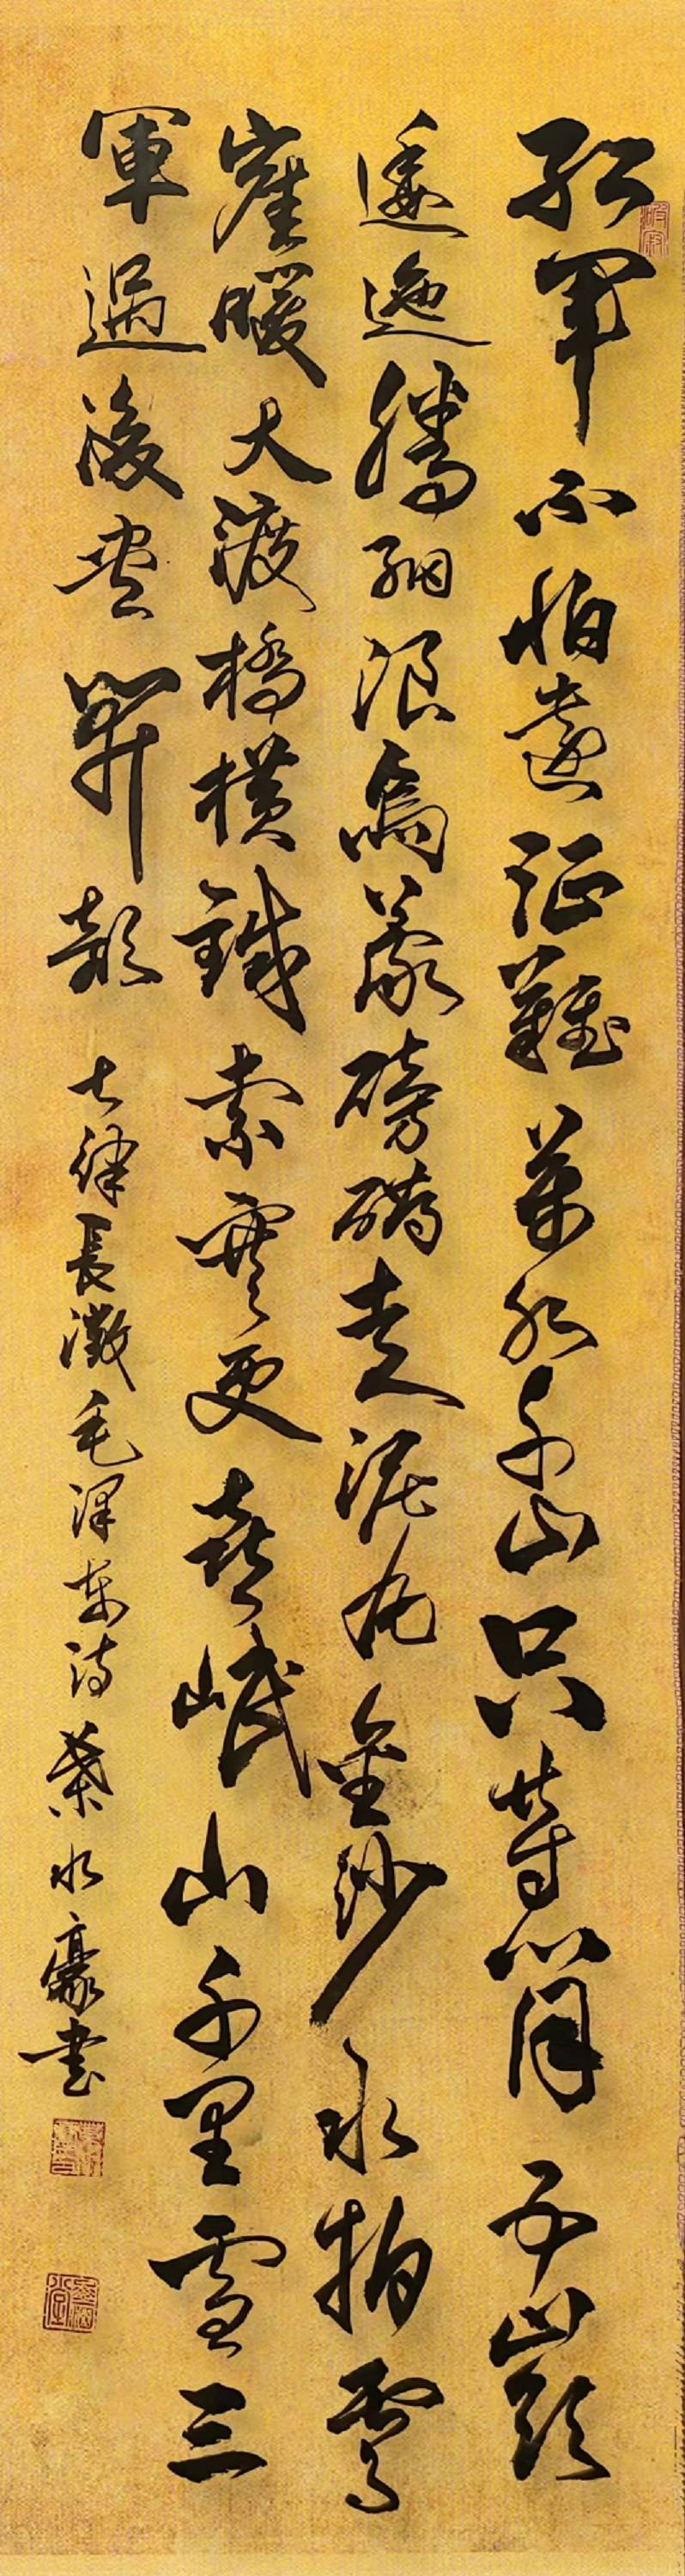 紅軍不怕遠征難萬水千山只等閒五嶺
逶迤騰細浪烏蒙磅礴走泥丸金沙水拍雲
崖暖大渡橋橫鐵索寒更喜岷山千里雪三
軍過後盡開顏 七律長徵毛澤東詩 葉水豪書